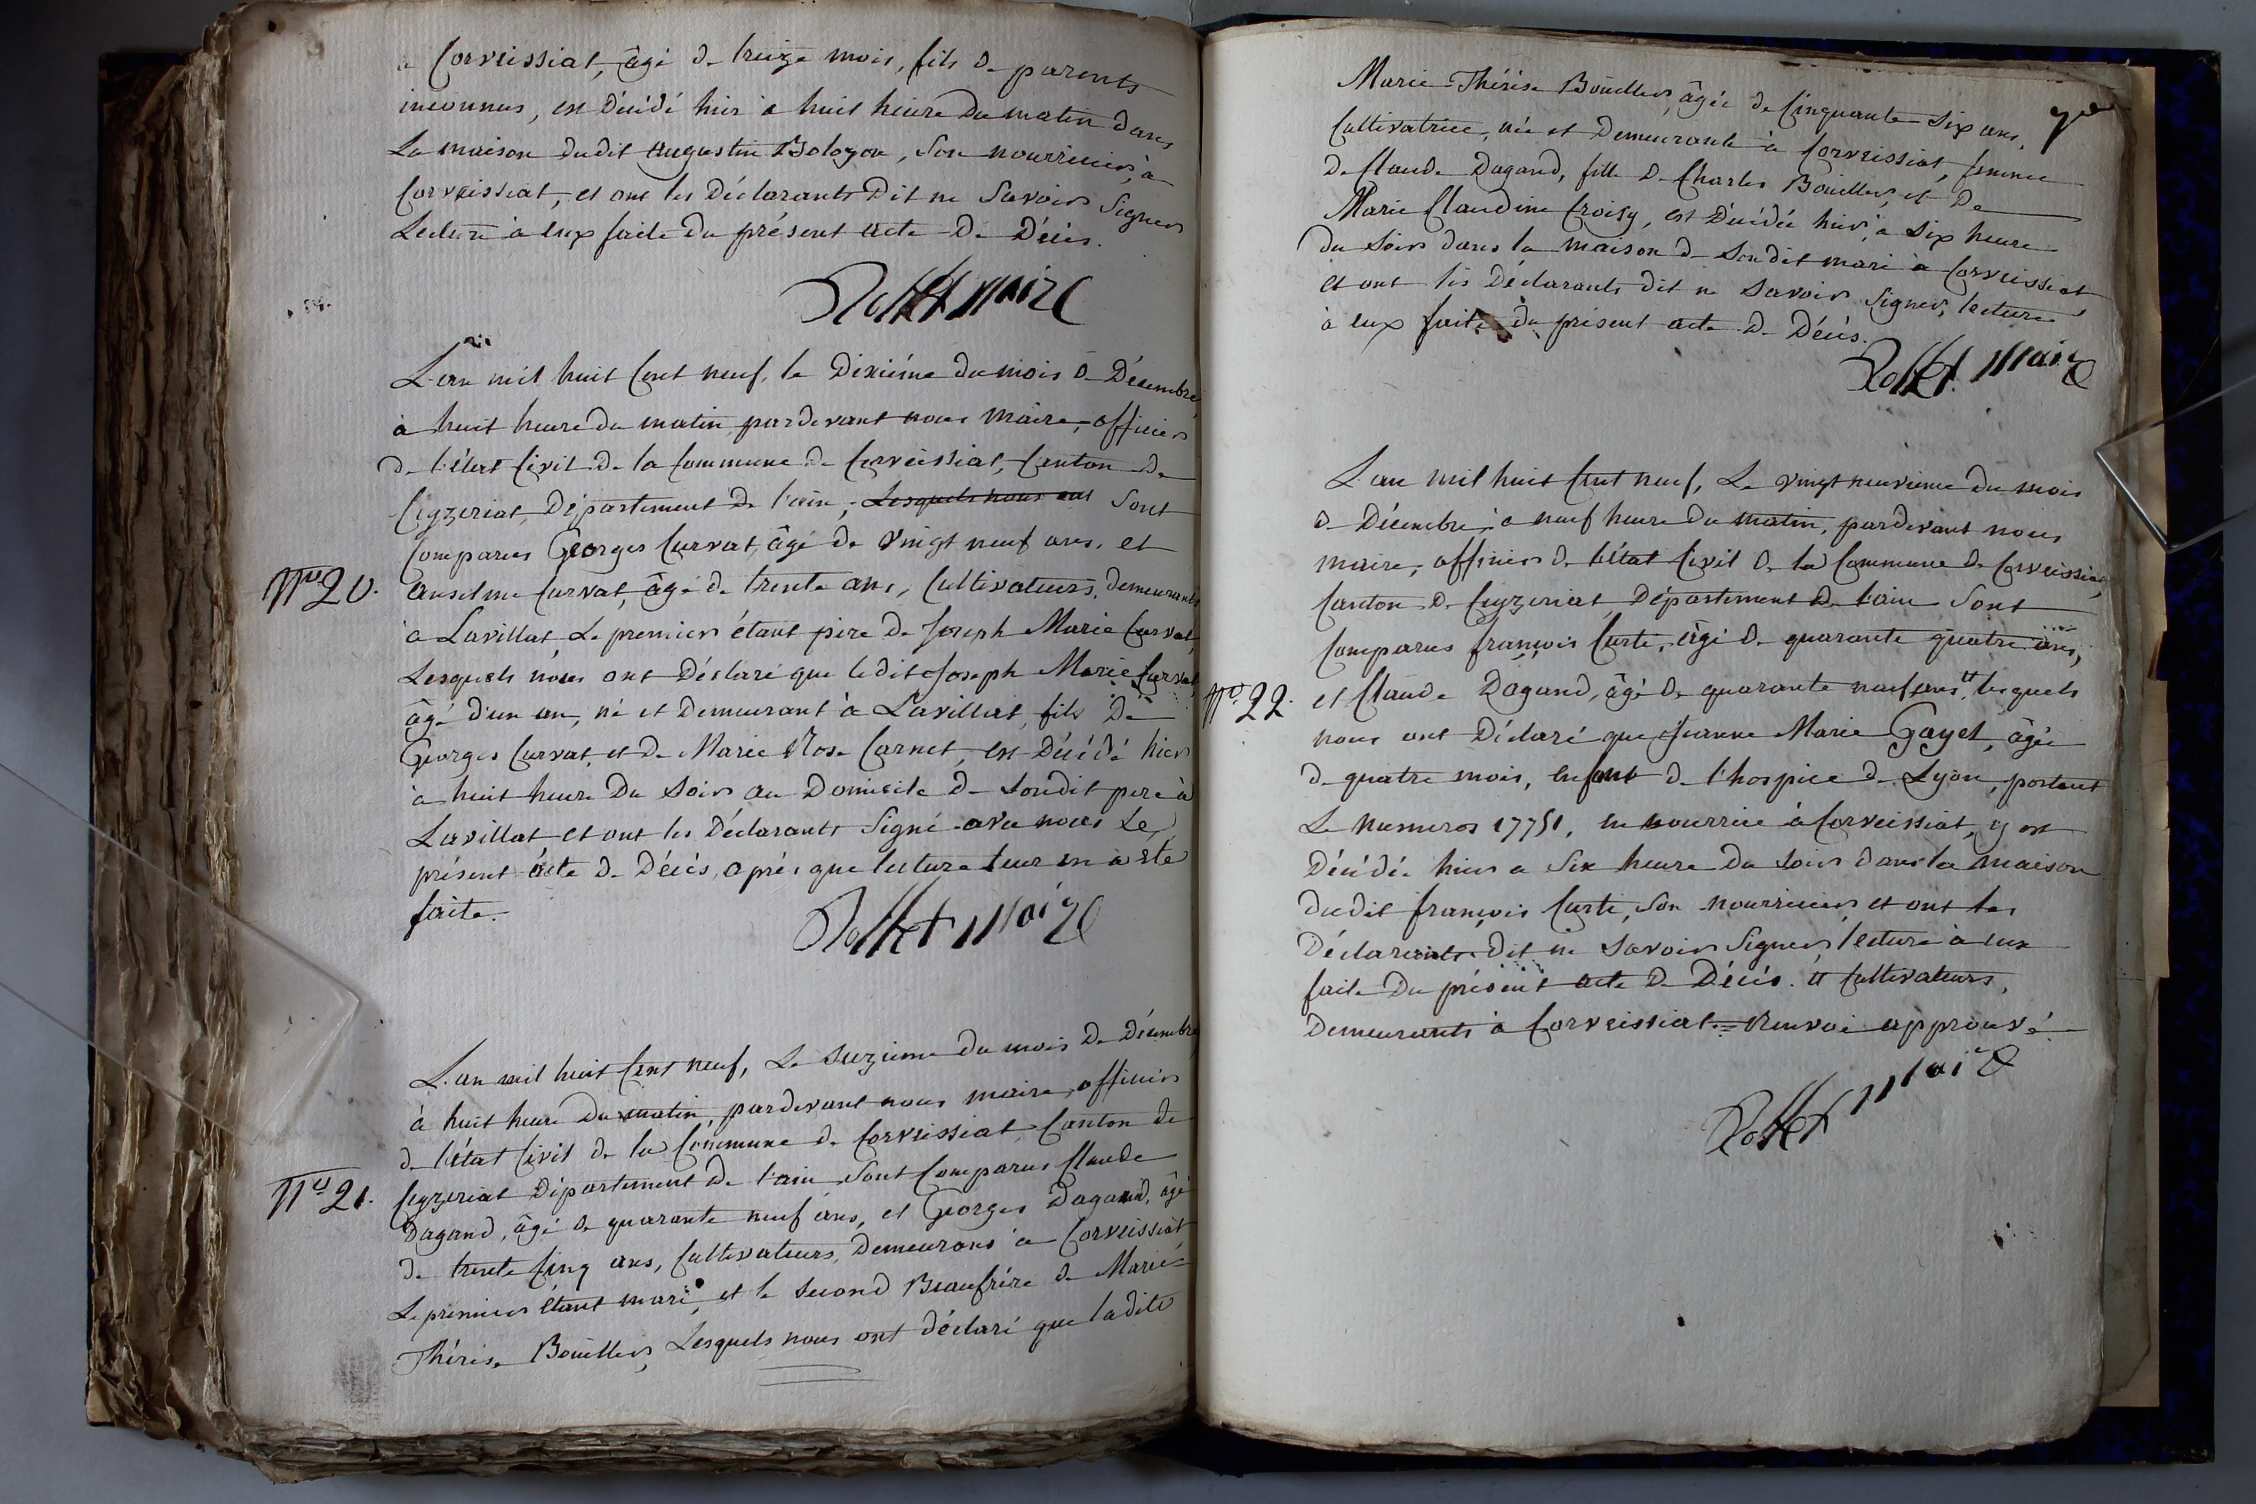 à Corveissiat, âgé de treize mois, fils de parents
inconnus, est Décédé hier à huit heure du matin dans
La maison dudit Augustin Bologon, Son nourricier, à
Corveissiat, et ont les Déclarants Dit ne Savoir Signer
Lecture à eux faite du présent acte De Décès.
Rollet maire
L'an mil huit Cent neuf, le Dixiéme du mois de Décembre,
à huit heure du matin, pardevant nous Maire, officier
de l'état Civil de la Commune de Corveissiat, Canton de
Ceyzeriat, Département de l'ain; Lesquels nous ont Sont
Comparus Georges Curvat, âgé de vingt neuf ans, et
No 20.
anselme Curvat, âgé de trente ans, Cultivateurs, demeurants
à Lavillat, Le premier étant pere de Joseph Marie Curvat,
Lesquels nous ont Déclaré que ledit Joseph Marie Curvat,
âgé d'un an, né et Demeurant à Lavillat, fils De
Georges Curvat, et de Marie Rose Carnet, est Décédé hier
à huit heure Du Soir au Domicile de Sondit pere à
Lavillat, et ont les Déclarants Signé avec nous Le
présent acte de Décès, après que lecture leur en a été
faite.
Rollet maire
L'an mil huit Cent neuf, Le Seizieme du mois De Décembre
à huit heure Du matin, pardevant nous maire, officier
de l'état Civil de la Commune de Corveissiat, Canton de
No 21.
Ceyzeriat Département de l'ain Sont Comparus Claude
Dagand, âgé de quarante neuf ans, et Georges Dagand, âgé
de trente Cinq ans, Cultivateurs, Demeurans à Corveissiat,
Le premier étant mari, et le Second Beaufrére de Marie-
Thérése Bouiller, Lesquels nous ont déclaré que ladite
Marie-Thérése Bouiller, âgée de Cinquante-Six ans,
Cultivatrice, née et Demeurante à Corveissiat, femme
de Claude Dagand, fille de Charles Bouiller, et De
Marie Claudine Croisy, est Décédée hier, à Six heure
du Soir dans la maison de Sondit mari à Corveissiat,
et ont les Déclarants dit ne Savoir Signer, lecture
à eux faite du présent acte de Décès.
Rollet. Maire
L'an mil huit Cent neuf, Le vingt neuvieme du mois
de Décembre, à neuf heure du matin, pardevant nous
maire, officier de l'état Civil de la Commune de Corveissiat,
Canton de Ceyzeriat, Département de l'ain Sont
Comparus françois Curte, âgé de quarante quatre ans,
No 22.
et Claude Dagand, âgé de quarante neuf ans # lesquels
nous ont Déclaré que Jeanne Marie Gayet, âgée
de quatre mois, enfant de l'hospice de Lyon, portant
Le numeros 17751, en nourrice à Corveissiat, y est
Décédée hier à Six heure du Soir dans la maison
dudit françois Curte, Son nourricier, et ont les
Déclarants dit ne Savoir Signer, lecture à eux
faite Du présent acte de Décès. # Cultivateurs,
Demeurants à Corveissiat. = Renvoi approuvé.
Rollet maire